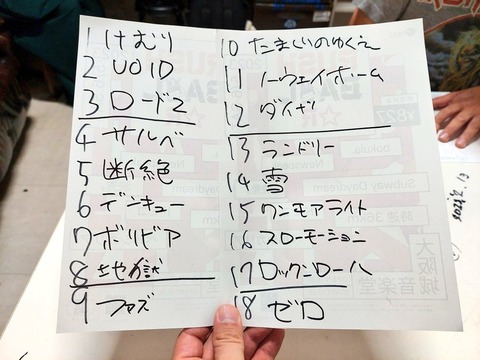 1 けむり
2 VOID
3 ロード2
4 サルベ
5 断絶
6 デンキュー
7 ボリビア
8 地獄
9 ファズ
10 たましいのゆくえ
11 ノーウェイホーム
12 ダイザ
13 ランドリー
14 雪
15 ワンモアライト
16 スローモーション
17 ロックンロールハ
18 ゼロ
bokula
Subway Daydream
時速36km
大阪城音楽堂